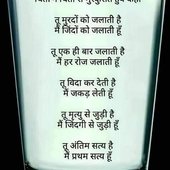 तू मुरदों को जलाती है
मैं जिंदों को जलाती हूँ
तू एक ही बार जलाती है
मैं हर रोज जलाती हूँ
तू विदा कर देती है
मैं जकड़ लेती हूँ
तू मृत्यु से जुड़ी है
मैं जिंदगी से जुड़ी हूँ
तू अंतिम सत्य है
मैं प्रथम सत्य हूँ